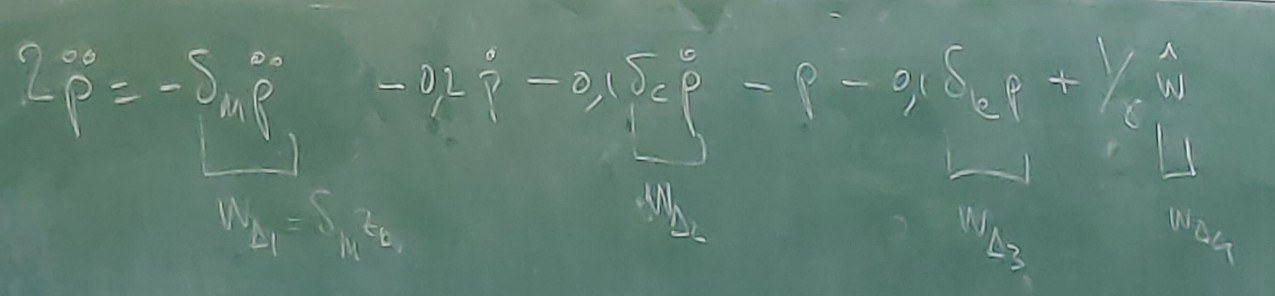 2p̈ = -δ_M p̈ - 0,2 ṗ - 0,1 δ_c ṗ - p - 0,1 δ_k p + 1/γ ŵ
w_Δ1 = δ_M z_Δ1 w_Δ2 w_Δ3 w_Δ4